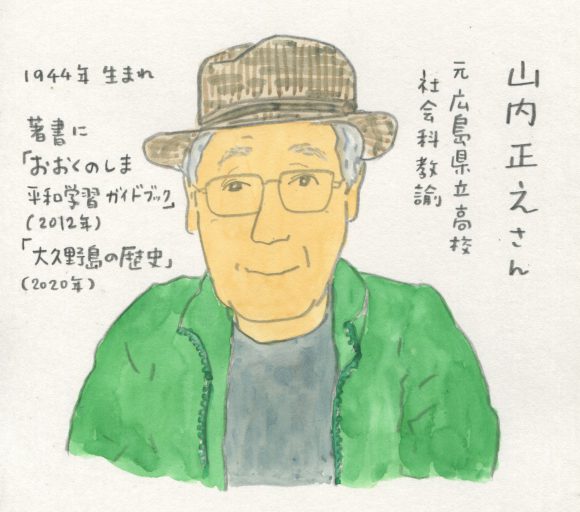 山内正之さん
元広島県立高校
社会科教諭
1944年 生まれ
著書に
「おおくのしま
平和学習ガイドブック」
(2012年)
「大久野島の歴史」
(2020年)